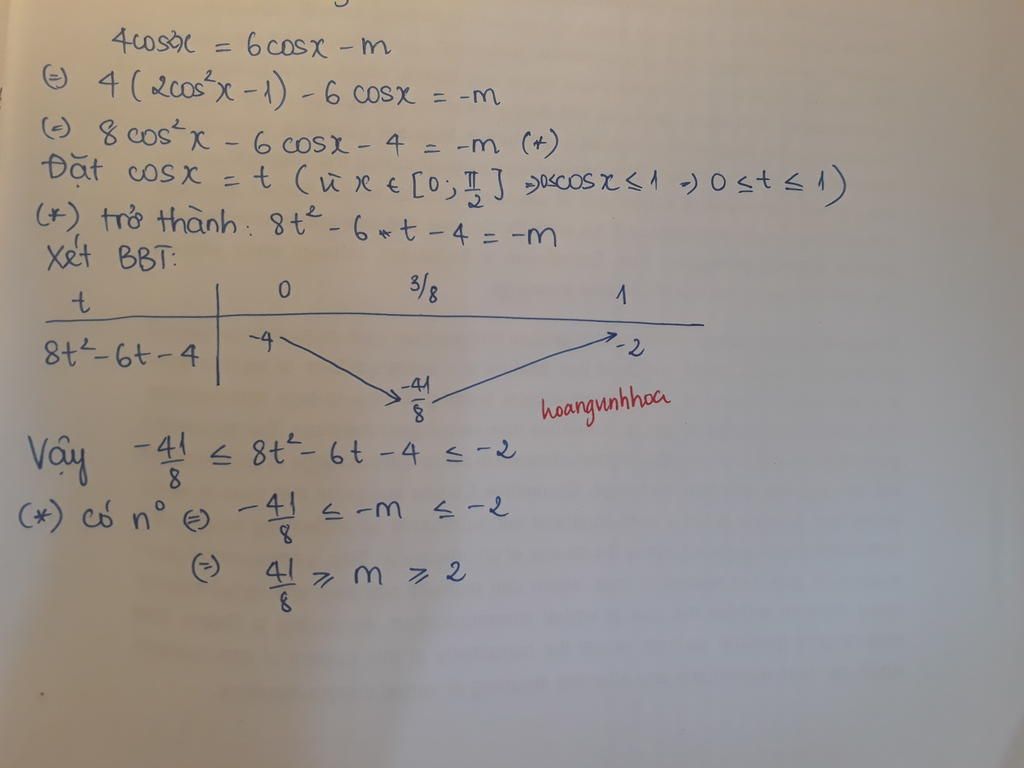 4cos2x = 6cosx - m
(=) 4(2cos²x - 1) - 6cosx = -m
(=) 8cos²x - 6cosx - 4 = -m (*)
Đặt cosx = t (vì x ∈ [0; π/2] => 0≤cosx ≤ 1 => 0 ≤ t ≤ 1)
(*) trở thành: 8t² - 6*t - 4 = -m
Xét BBT:
t 0 3/8 1
8t² - 6t - 4 -4 -41/8 -2
hoangunhhoa
Vậy -41/8 ≤ 8t² - 6t - 4 ≤ -2
(*) có n° (=) -41/8 ≤ -m ≤ -2
(=) 41/8 ≥ m ≥ 2